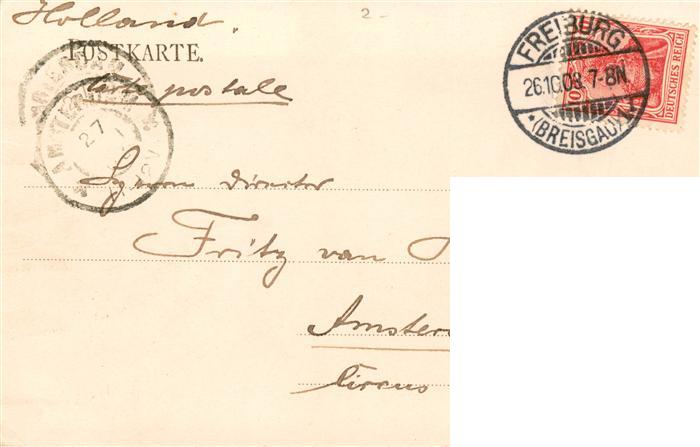 Holland.
2-
POSTKARTE.
Carte postale
FREIBURG
26.10.03.7-8N
*(BREISGAU)
DEUTSCHES REICH
10
27
Director
Fritz van
Amster
Circus